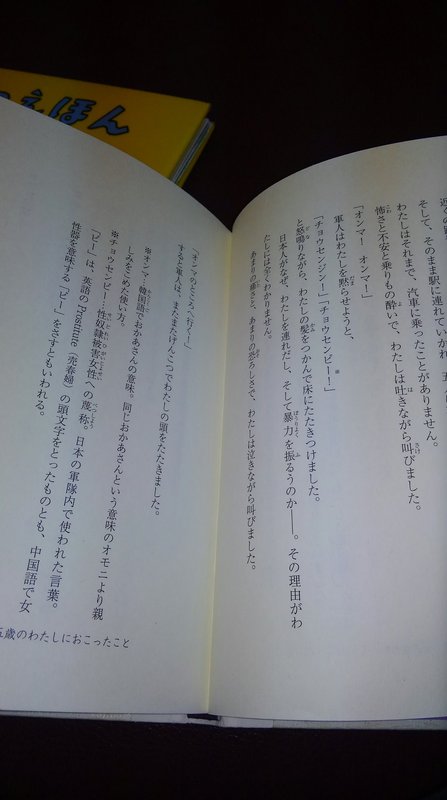 えほん
く、そのまま駅に連れていかれ、
わたしはそれまで、汽車に乗ったことがありません。
怖さと不安と乗りもの酔いで、わたしは吐きながら叫びました。
「オンマ! オンマ!」
軍人はわたしを黙らせようと、
「チョウセンジン!」「チョウセンピー!」
と怒鳴りながら、わたしの髪をつかんで床にたたきつけました。
日本人がなぜ、わたしを連れだし、そして暴力を振るうのか――。その理由がわ
たしには全くわかりません。
あまりの痛さと、あまりの恐ろしさで、わたしは泣きながら叫びました。
「オンマのところへ行くー!」
すると軍人は、またまたげんこつでわたしの頭をたたきました。
※オンマ:韓国語で、おかあさんの意味。同じおかあさんという意味のオモニより親
しみをこめた使い方。
※チョウセンピー:性奴隷被害女性への蔑称。日本の軍隊内で使われた言葉。
「ピー」は、英語の Prostitute(売春婦)の頭文字をとったものとも、中国語で女
性器を意味する「ピー」をさすともいわれる。
五歳のわたしにおこったこと